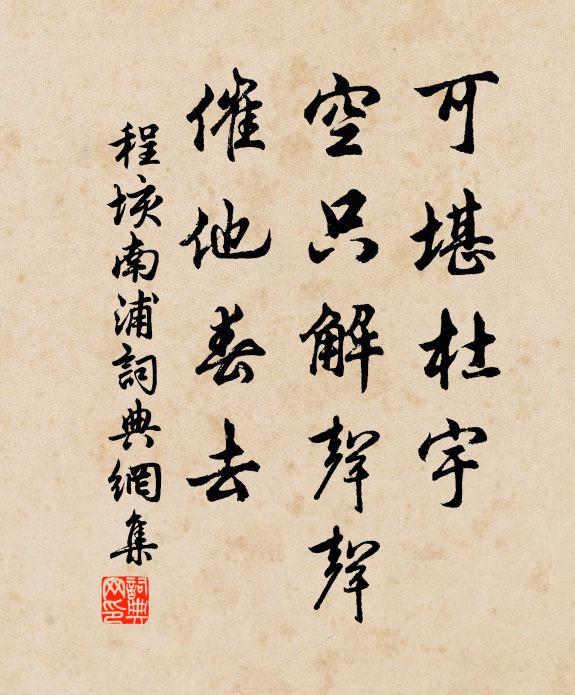 可堪杜宇
空只解聲聲
催他春去
程垓南浦詞典網集
詞典网印